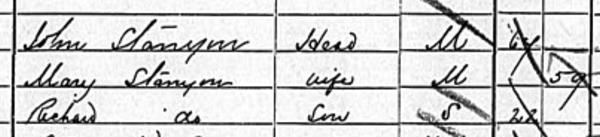 John Stanyon Head M 64
Mary Stanyon wife M 59
Richard do Son S